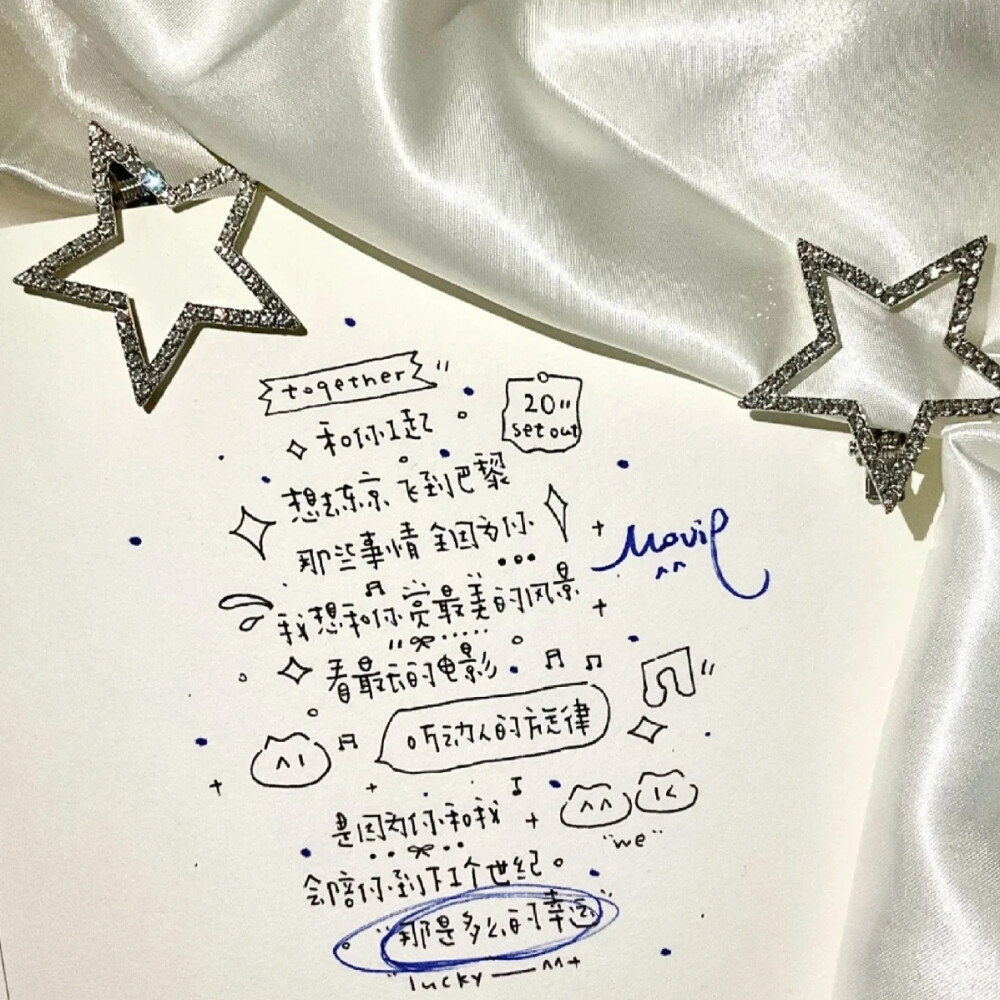 together
20"
set out
和你1起
想去东京 飞到巴黎
那些事情 全因为你
Movie
我想和你 赏最美的风景
看最长的电影
听动人的旋律
是因为你和我
"we"
会陪你到下1个世纪。
"那是多么的幸运"
"lucky —— ^^+